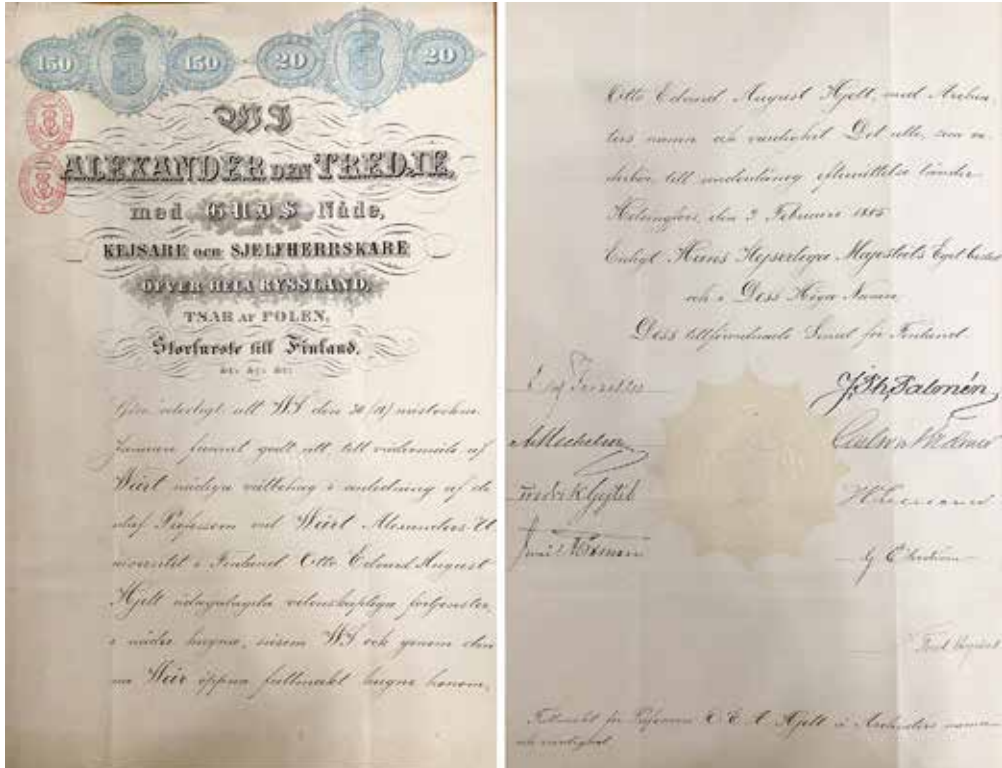 150 150 20 20
WI
ALEXANDER DEN TREDJE,
med GUDS Nåde,
KEJSARE OCH SJELFHERRSKARE
ÖFVER HELA RYSSLAND,
TSAR AF POLEN,
Storfurste till Finland,
&c. &c. &c.
Göre veterligt att WI den
funnit godt att, till vedermäle af
Wårt nådiga välbehag i anledning af de
af Professorn vid Wårt Alexanders-U
niversitet i Finland Otto Edvard August
Hjelt ådagalagda vetenskapliga förtjenster,
i nåder hugna, såsom WI och genom den
na Wår öppna fullmakt hugne honom,
Otto Edvard August Hjelt, med Archia-
ters namn och värdighet. Det alle, som ve-
derbör, till underdånig efterrättelse länder.
Helsingfors, den 9 Februari 1885.
Enligt Hans Kejserliga Majestäts Eget beslut
och i Dess Höga Namn,
Dess tillförordnade Senat för Finland.
J. Ph. Palmén
L. Mechelin
Fullmakt för Professorn O. E. A. Hjelt å Archiaters namn
och värdighet.